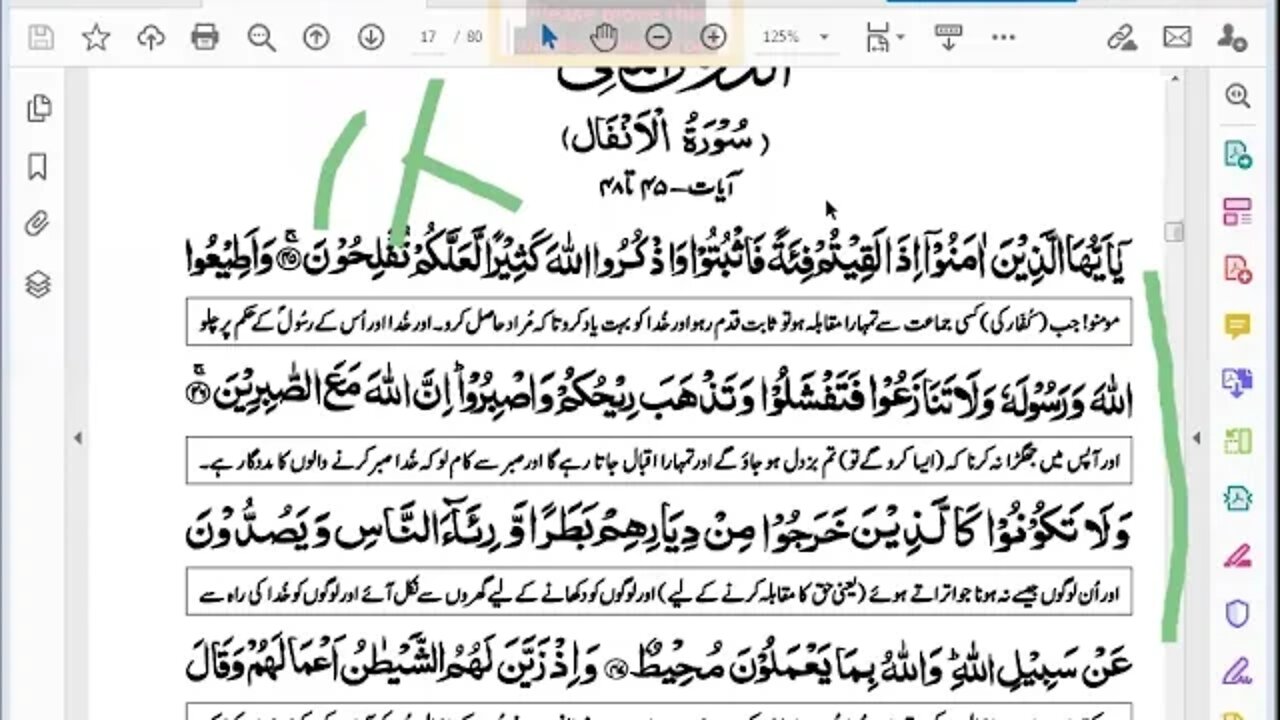 17 / 80
125%
(سُوْرَةُ الْاَنْفَال)
آیات ـ ۴۵ تا ۴۸
يٰۤاَيُّهَا الَّذِيْنَ اٰمَنُوْۤا اِذَا لَقِيْتُمْ فِئَةً فَاثْبُتُوْا وَاذْكُرُوا اللّٰهَ كَثِيْرًا لَّعَلَّكُمْ تُفْلِحُوْنَ ۴۵ وَاَطِيْعُوا
مومنو! جب (کفار کی) کسی جماعت سے تمہارا مقابلہ ہو تو ثابت قدم رہو اور خُدا کو بہت یاد کرو تا کہ مُراد حاصل کرو۔ اور خُدا اور اُس کے رسولؐ کے حکم پر چلو
اللّٰهَ وَرَسُوْلَهٗ وَلَا تَنَازَعُوْا فَتَفْشَلُوْا وَتَذْهَبَ رِيْحُكُمْ وَاصْبِرُوْا ؕ اِنَّ اللّٰهَ مَعَ الصّٰبِرِيْنَ ۴۶
اور آپس میں جھگڑا نہ کرنا کہ (ایسا کرو گے تو) تم بزدل ہو جاؤ گے اور تمہارا اقبال جاتا رہے گا اور صبر سے کام لو کہ خُدا صبر کرنے والوں کا مددگار ہے۔
وَلَا تَكُوْنُوْا كَالَّذِيْنَ خَرَجُوْا مِنْ دِيَارِهِمْ بَطَرًا وَّ رِئَآءَ النَّاسِ وَيَصُدُّوْنَ
اور اُن لوگوں جیسے نہ ہونا جو اتراتے ہوئے (یعنی حق کا مقابلہ کرنے کے لیے) اور لوگوں کو دکھانے کے لیے گھروں سے نکل آئے اور لوگوں کو خُدا کی راہ سے
عَنْ سَبِيْلِ اللّٰهِ ؕ وَاللّٰهُ بِمَا يَعْمَلُوْنَ مُحِيْطٌ ۴۷ وَاِذْ زَيَّنَ لَهُمُ الشَّيْطٰنُ اَعْمَالَهُمْ وَقَالَ